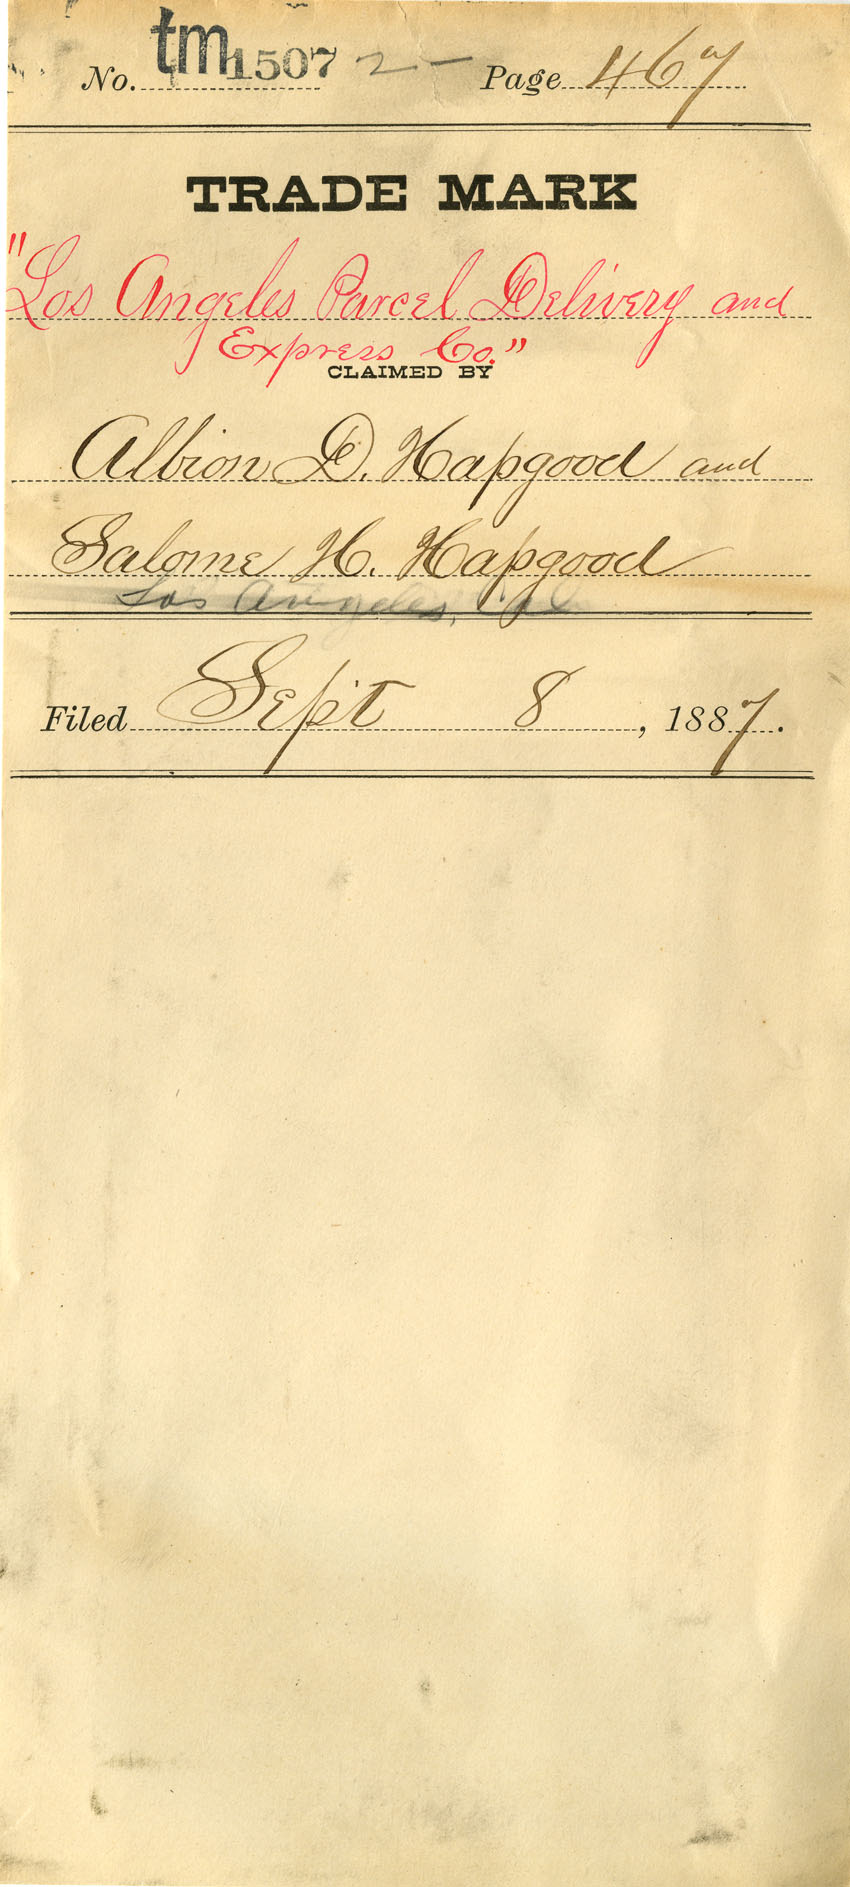 No. tm 1507 2 — Page 467
TRADE MARK
"Los Angeles Parcel Delivery and
Express Co."
CLAIMED BY
Albion D. Hapgood and
Salome H. Hapgood
Los Angeles, Cal
Filed Sept 8, 1887.